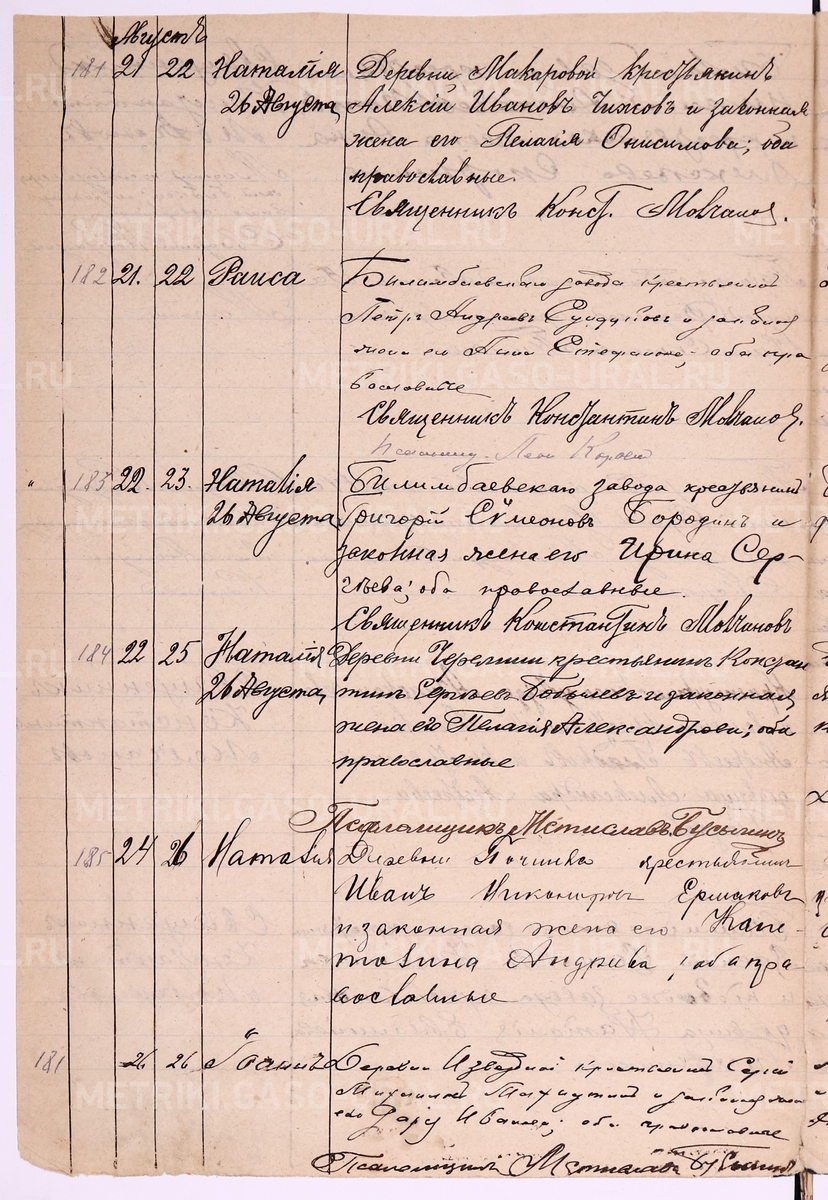 Августъ
181 21 22 Наталія Деревни Макаровой крестьянинъ
26 Августа Алексій Ивановъ Чижовъ и законная
жена его Пелагія Онисимова; оба
православные.
Священникъ Конст. Молчановъ.
182 21. 22 Раиса Билимбаевскаго завода крестьянинъ
Петръ Андреевъ и законная
жена его Анна Стефанова; оба пра
вославные
Священникъ Константинъ Молчановъ.
183 22. 23. Наталія Билимбаевскаго завода крестьянинъ
26 Августа Григорій Сѵмеоновъ Бородинъ и
законная жена его Ирина Сер-
гѣева; оба православные.
Священникъ Константинъ Молчановъ
184 22 25 Наталія Деревни Черемши крестьянинъ Констан
26 Августа, тинъ Сергѣевъ Бобылевъ и законная
жена его Пелагія Александрова; оба
православные
Псаломщикъ Мстиславъ
185 24 26 Наталія Деревни Починка крестьянинъ
Иванъ Никаноровъ Ермаковъ
и законная жена его Капи-
толина Андреева; оба пра-
вославные
181 26 26 Іоаннъ Деревни Извездной крестьянинъ Сергій
Михаиловъ и законная жена
его Иванова; оба православные
Псаломщикъ Мстиславъ
METRIKI.GASO-URAL.RU